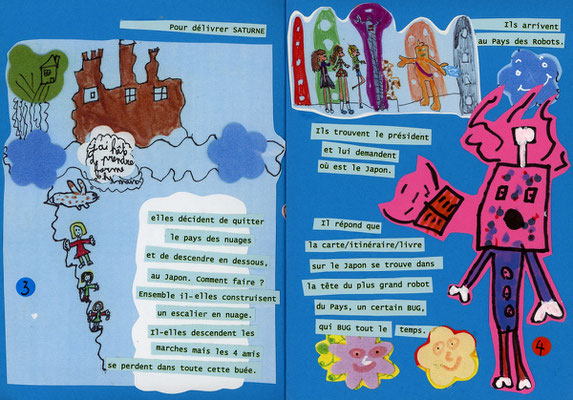 Pour délivrer SATURNE
j'ai hâte
de prendre
forme
humaine
elles décident de quitter
le pays des nuages
et de descendre en dessous,
au Japon. Comment faire ?
Ensemble il-elles construisent
un escalier en nuage.
Il-elles descendent les
marches mais les 4 amis
se perdent dans toute cette buée.
3
Ils arrivent
au Pays des Robots.
Ils trouvent le président
et lui demandent
où est le Japon.
Il répond que
la carte/itinéraire/livre
sur le Japon se trouve dans
la tête du plus grand robot
du Pays, un certain BUG,
qui BUG tout le temps.
4